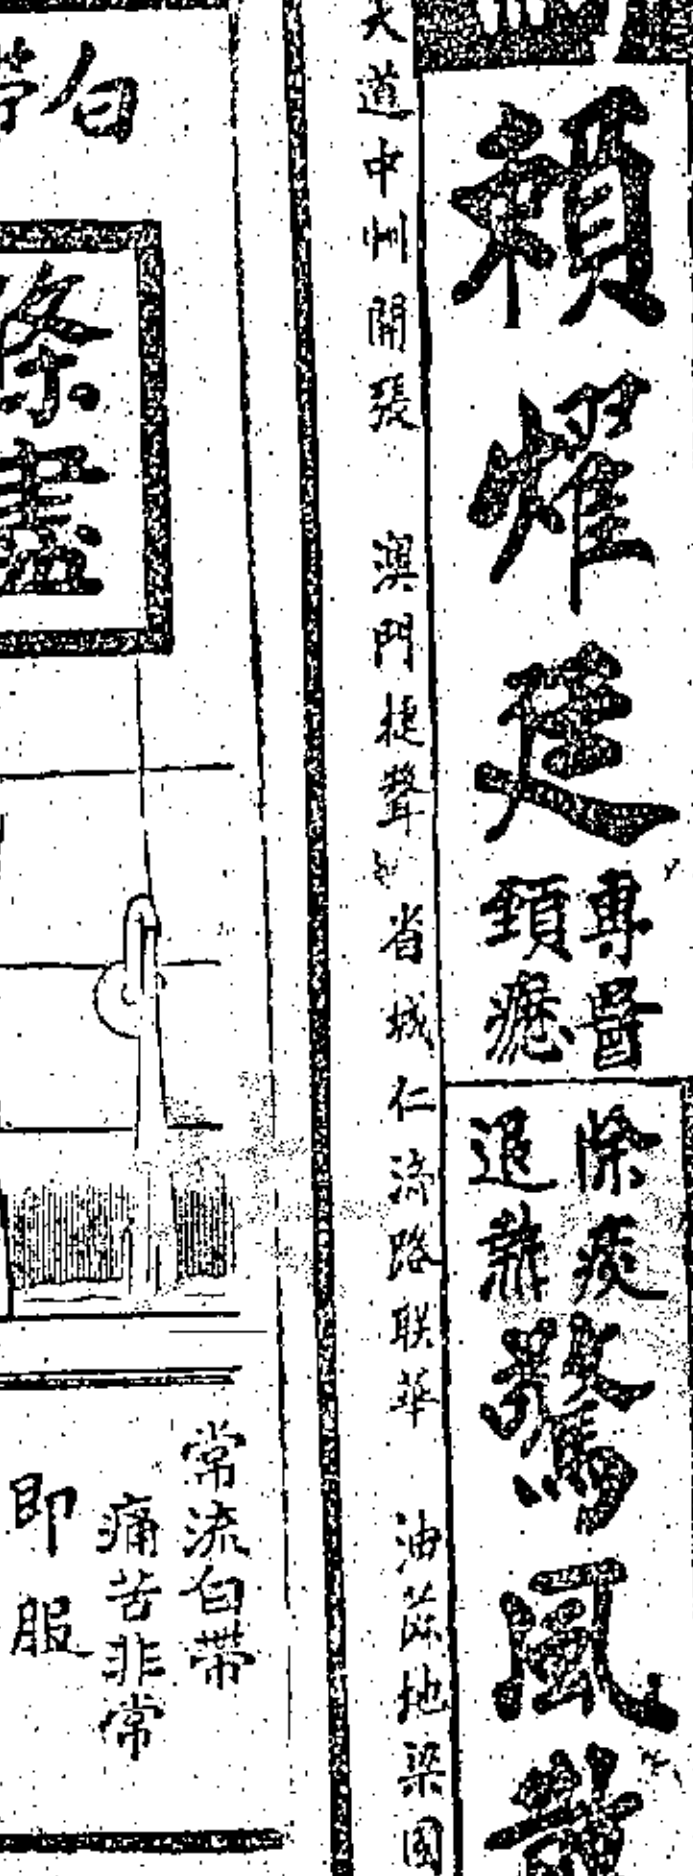 賴耀廷
專醫
頸癧
除痰
退熱
驚風散
大道中州開張 澳門捷聲 省城仁濟路联華 油蔴地梁國
白帶
條盡
常流白帶
痛苦非常
即服